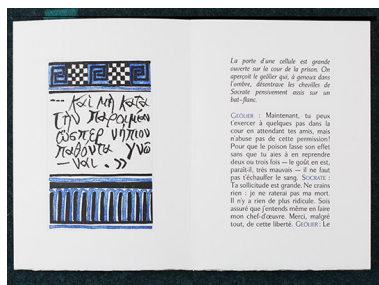 --- καὶ μὴ κατὰ
τὴν παροιμίαν
ὥσπερ νήπιον
παθόντα γνῶ
— ναι. »
La porte d'une cellule est grande
ouverte sur la cour de la prison. On
aperçoit le geôlier qui, à genoux dans
l'ombre, désentrave les chevilles de
Socrate pensivement assis sur un
bat-flanc.
GEÔLIER : Maintenant, tu peux
t'exercer à quelques pas dans la
cour en attendant tes amis, mais
n'abuse pas de cette permission!
Pour que le poison fasse son effet
sans que tu aies à en reprendre
deux ou trois fois — le goût en est,
paraît-il, très mauvais — il ne faut
pas t'échauffer le sang. SOCRATE :
Ta sollicitude est grande. Ne crains
rien : je ne raterai pas ma mort.
Il n'y a rien de plus ridicule. Sois
assuré que j'entends même en faire
mon chef-d'œuvre. Merci, malgré
tout, de cette liberté. GEÔLIER : Le